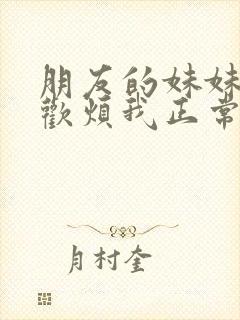 朋友的妹妹
歡煩我正常
月村奎